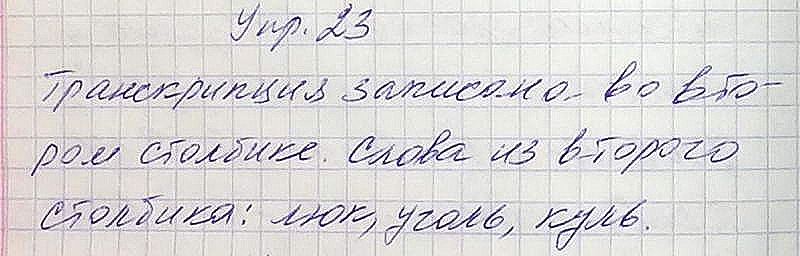 Упр. 23
Транскрипция записана во вто-
ром столбике. Слова из второго
столбика: люк, уголь, куль.